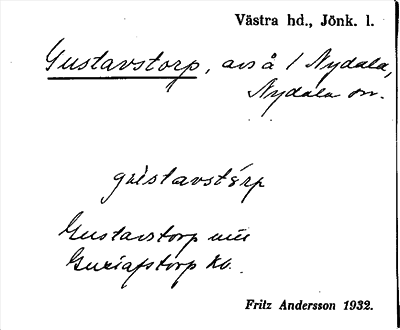 Västra hd., Jönk. l.
Gustavstorp, avs å 1 Nydala,
Nydala sn.
gùstavstórp
Gustavstorp
Gustafstorp kb.
Fritz Andersson 1932.